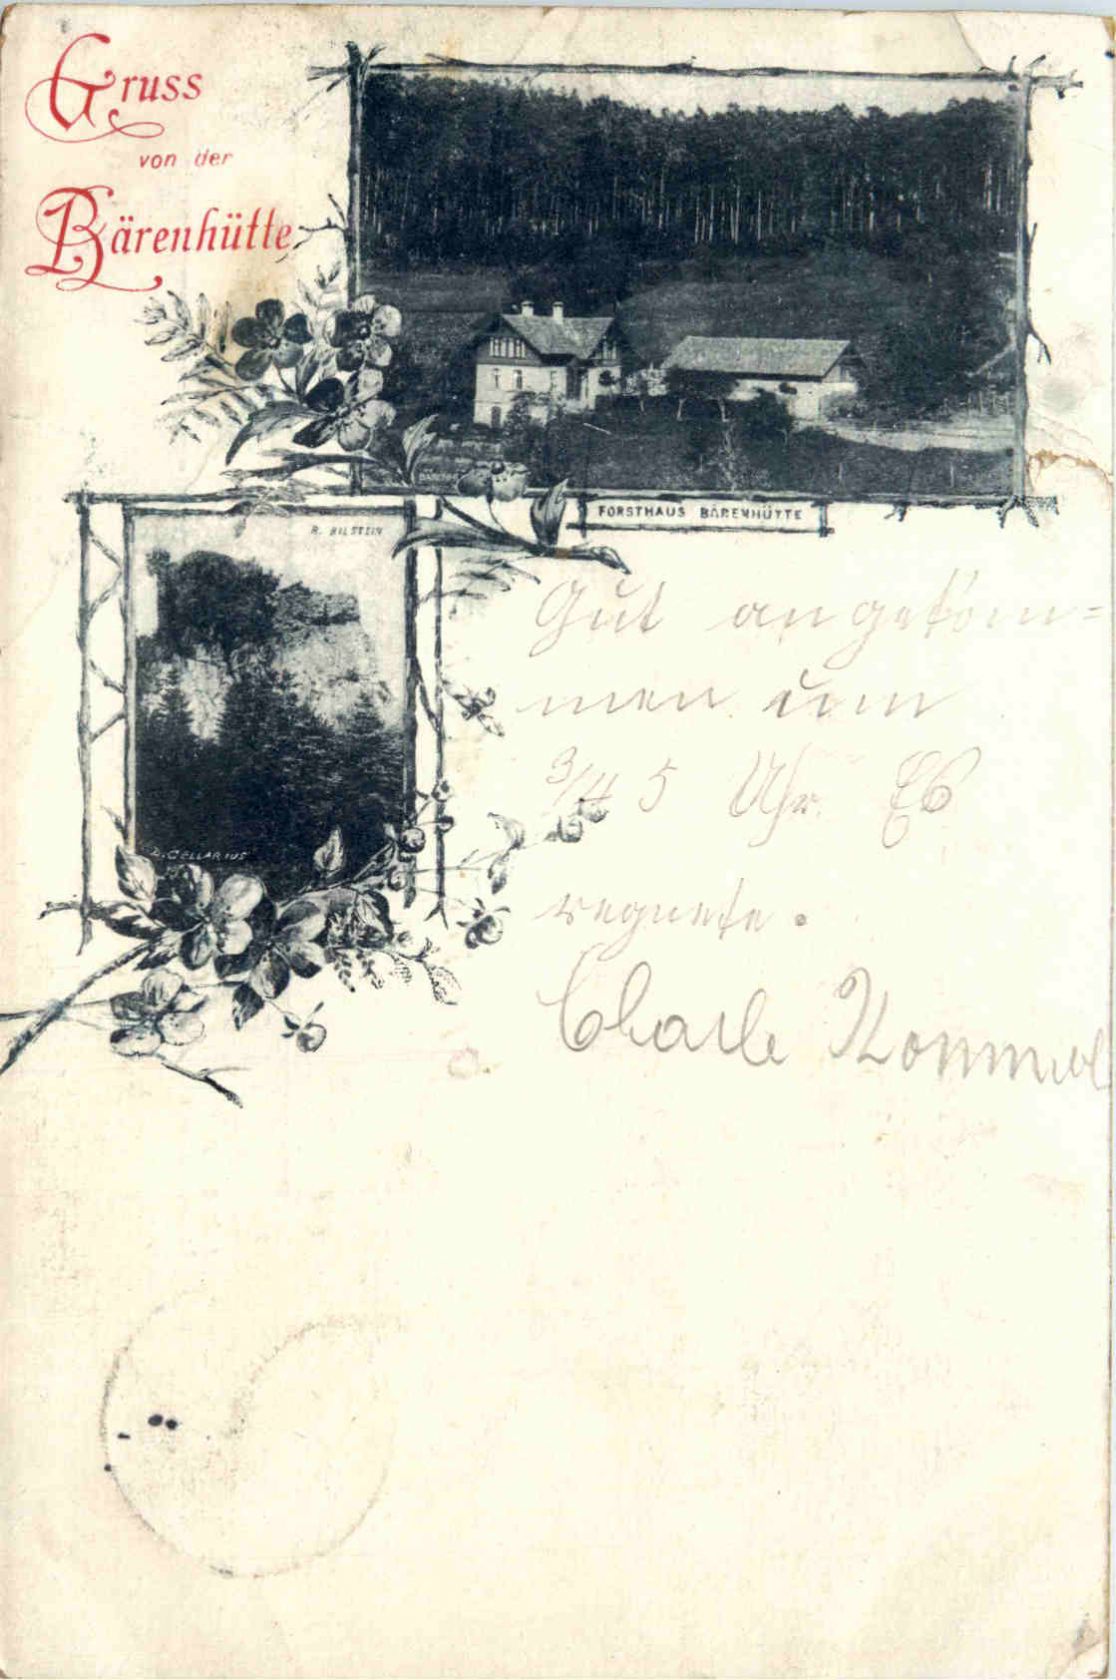 Gruss
von der
Bärenhütte
FORSTHAUS BÄRENHÜTTE
R. BILSTEIN
L. CELLARIUS
Gut angekom=
men um
3/4 5 Uhr. Es
regnete.